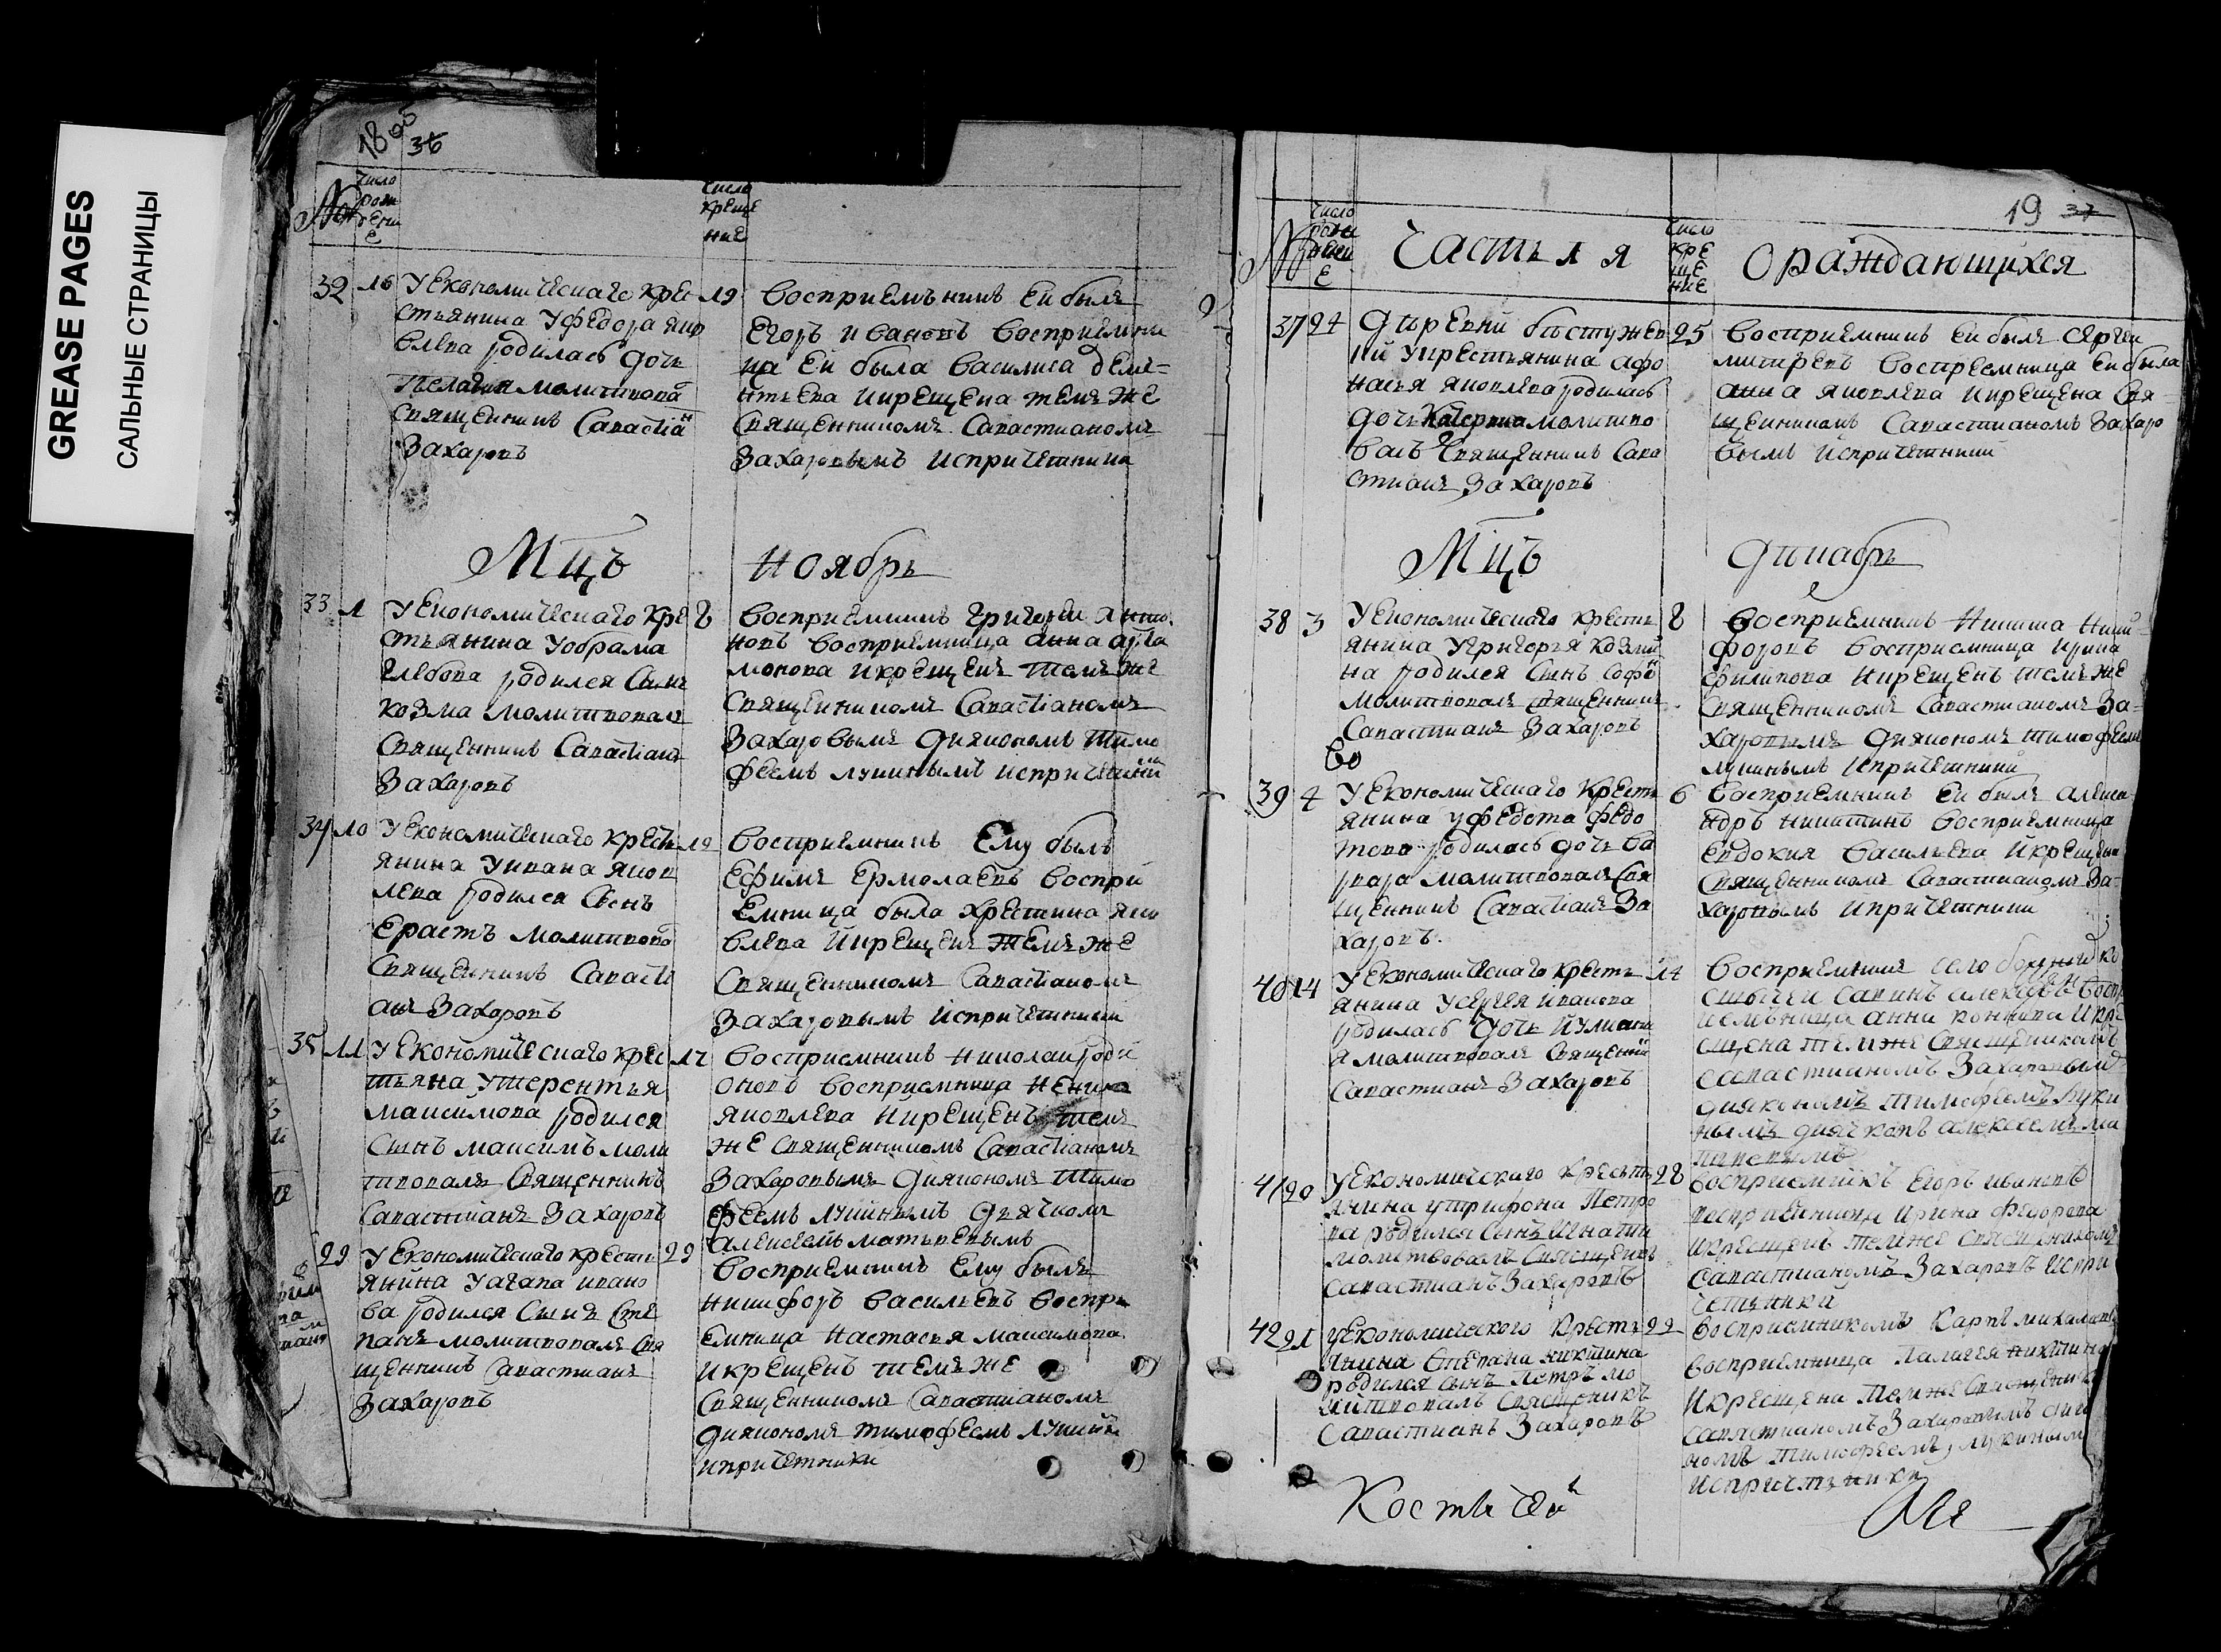 GREASE PAGES
САЛЬНЫЕ СТРАНИЦЫ
18
36
№
Число
рож
дени
е
Число
креще
ние
32 16 У Економическаго кре 19
стьянина У федора яко
влева родилась дочь
Пелагия молитвова
священникъ Савастiан
Захаровъ
восприемъникъ ей былъ
Егоръ ивановъ восприемни
ца ей была василиса деме=
нтьева икрещена темъ же
священникомъ Савастианомъ
Захаровымъ испричетники
Мцъ Ноябрь
33 1 У Економическаго кре 8
стьянина Уобрама
Глебова родился сынъ
козма молитвовалъ
священникъ Савастiанъ
Захаровъ
восприемникъ григореи анто
новъ восприемница анна арта
монова икрещенъ темъ же
священникомъ Савастiаномъ
Захаровымъ дияконом тимо
феемъ лукинымъ испричетники
34 10 У економическаго крестъ 19
янина Уивана яков
лева родился сынъ
Ерастъ молитвова
священникъ Савастi
анъ Захаровъ
восприемникъ Ему былъ
Ефимъ Ермолаевъ воспри
емница была Крестина яко
влева икрещенъ темъ же
священникомъ Савастiаномъ
Захаровымъ испричетники
35 11 У Економическаго крес 18
тьяна Утерентья
максимова родился
сынъ максимъ моли
твовалъ священникъ
Савастианъ Захаровъ
восприемникъ николаи роди
оновъ восприемница
яковлева икрещенъ темъ
же священникомъ Савастiаномъ
Захаровымъ дияконом тимо
феемъ лукинымъ дьячкомъ
алексеемъ матвеевымъ
29 У Економическаго крестъ 29
янина Уагапа ивано
ва родился сынъ сте
панъ молитвовалъ свя
щенникъ Савастианъ
Захаровъ
восприемникъ Ему былъ
никифоръ васильевъ воспри
емница настасья максимова
икрещенъ темъ же
священникомъ Савастианомъ
дияконом тимофеемъ лукины
ипричетники
19 37
№
Число
рож
дени
е
Часть 1 я
Число
кре
ще
ние
Ораждающихся
37 24 деревни бестужев 25
ки укрестьянина афо
насья яковлева родилась
дочь Катерина молитво
валъ священникъ Сава
стианъ Захаровъ
восприемникъ ей былъ сергеи
митревъ восприемница ей была
анна яковлева икрещена свя=
щенникомъ Савастианомъ Захаро
вымъ испричетники
Мцъ Декабрь
38 3 У Економическаго крестъ 8
янина Угригорья козми
на родился сынъ софо
молитвовалъ священникъ
Савастианъ Захаровъ
восприемникъ никита ники=
форовъ восприемница ирина
филипова икрещенъ темъ же
священникомъ Савастианомъ За=
харовымъ дияконом тимофеемъ
лукинымъ ипричетники
во
39 4 У Економическаго крестъ 6
янина уфедота федо
това родилась дочь ва
рвара молитвовалъ свя
щенникъ Савастианъ За
харовъ.
восприемникъ ей былъ алекса
ндръ никитинъ восприемница
евдокия васильева икрещена
священникомъ Савастианомъ За=
харовымъ ипричетники
40 14 У економическаго крестъ 14
янина Усергея иванова
родилась дочь иулиани
я молитвовалъ священни
Савастианъ Захаровъ
восприемникъ село
савинъ алексеевъ воспр
иемъница анна икре
щена темже священикомъ
савастианомъ Захаровымъ
дияконом тимофеемъ луки
нымъ дьячковъ алексеемъ ма
твевымъ
41 20 У економическаго крестъ 28
янина утрифона Петро
ва родился сынъ игнатии
молитвовалъ священикъ
савастианъ Захаровъ
восприемникъ Егоръ ивановъ
восприемница ирина федорова
икрещенъ темже священикомъ
савастианомъ Захаровъ испри
четьники
42 21 уекономического крестъ 29
янина степана никтина
родился сынъ Петръ мо
литвовалъ священикъ
савастианъ Захаровъ
восприемникомъ Карпъ михаиловъ
восприемница Палагея никтина
икрещена темже священико
савастианомъ Захаровымъ дияко
номъ тимофеемъ лукиным
испричетьники